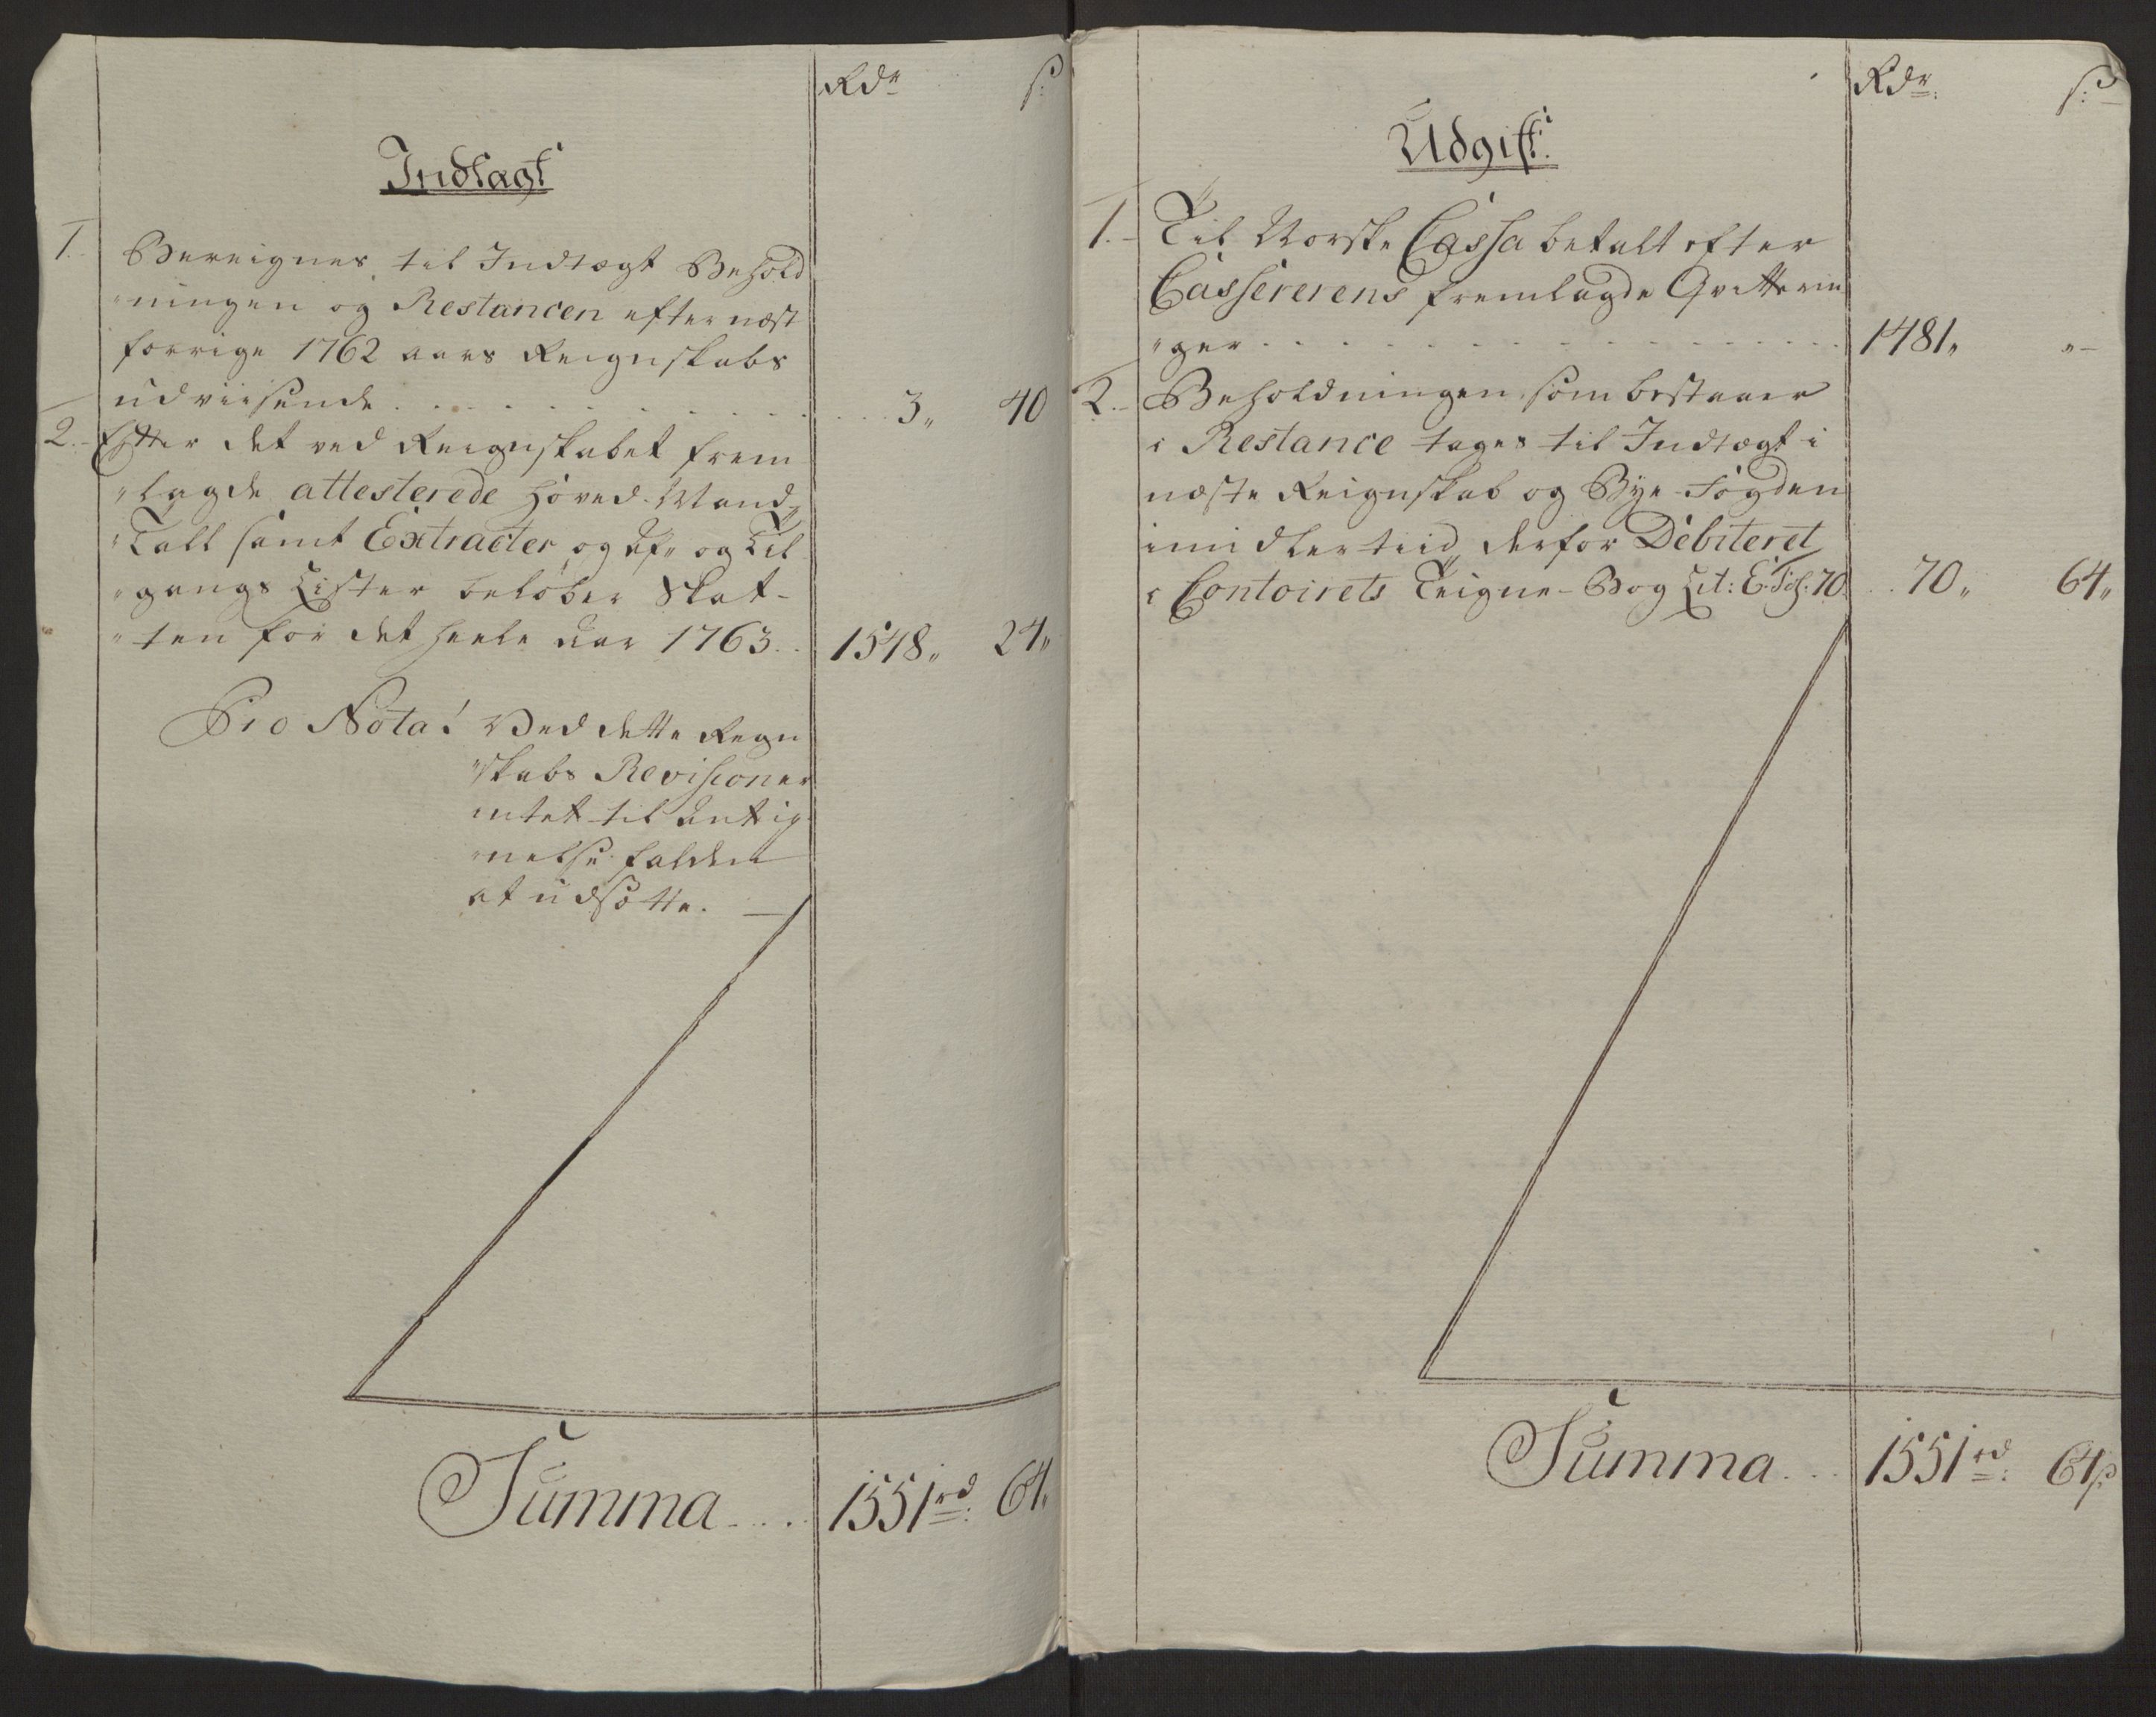 Rdr s:
Indtægt
1. Bereignes til Indtægt Behold
"ningen og Restancen efter næst
forrige 1762 aars Reignskabs
udviisende . . . . . . . . . . . 3„ 40
2. Efter det ved Reignskabet frem
"lagde attesterede Hoved-Mand„
"Tall samt Extracter og Af„ og Til
"gangs Lister beløber Skat-
"ten for det heele Aar 1763 . . 1548„ 24„
Pro Nota! Ved dette Regn
"skabs Revisioner
intet til Anteg
"nelse falden
at udsætte. —
Summa . . . . 1551rd: 64„
Rdr: s:
Udgift.
1. Til Norske Cassa betalt efter
Cassererens fremlagde Qvitterin
"ger . . . . . . . . . . . . . . 1481„ „—
2. Beholdningen som bestaaer
i Restance tages til Indtægt i
næste Reignskab og Bye-Fogden
imidlertiid derfor Debiteret
i Contoirets Teigne-Bog Lit: E. Fol: 70. . . 70„ 64„
Summa . . . 1551rd: 64s